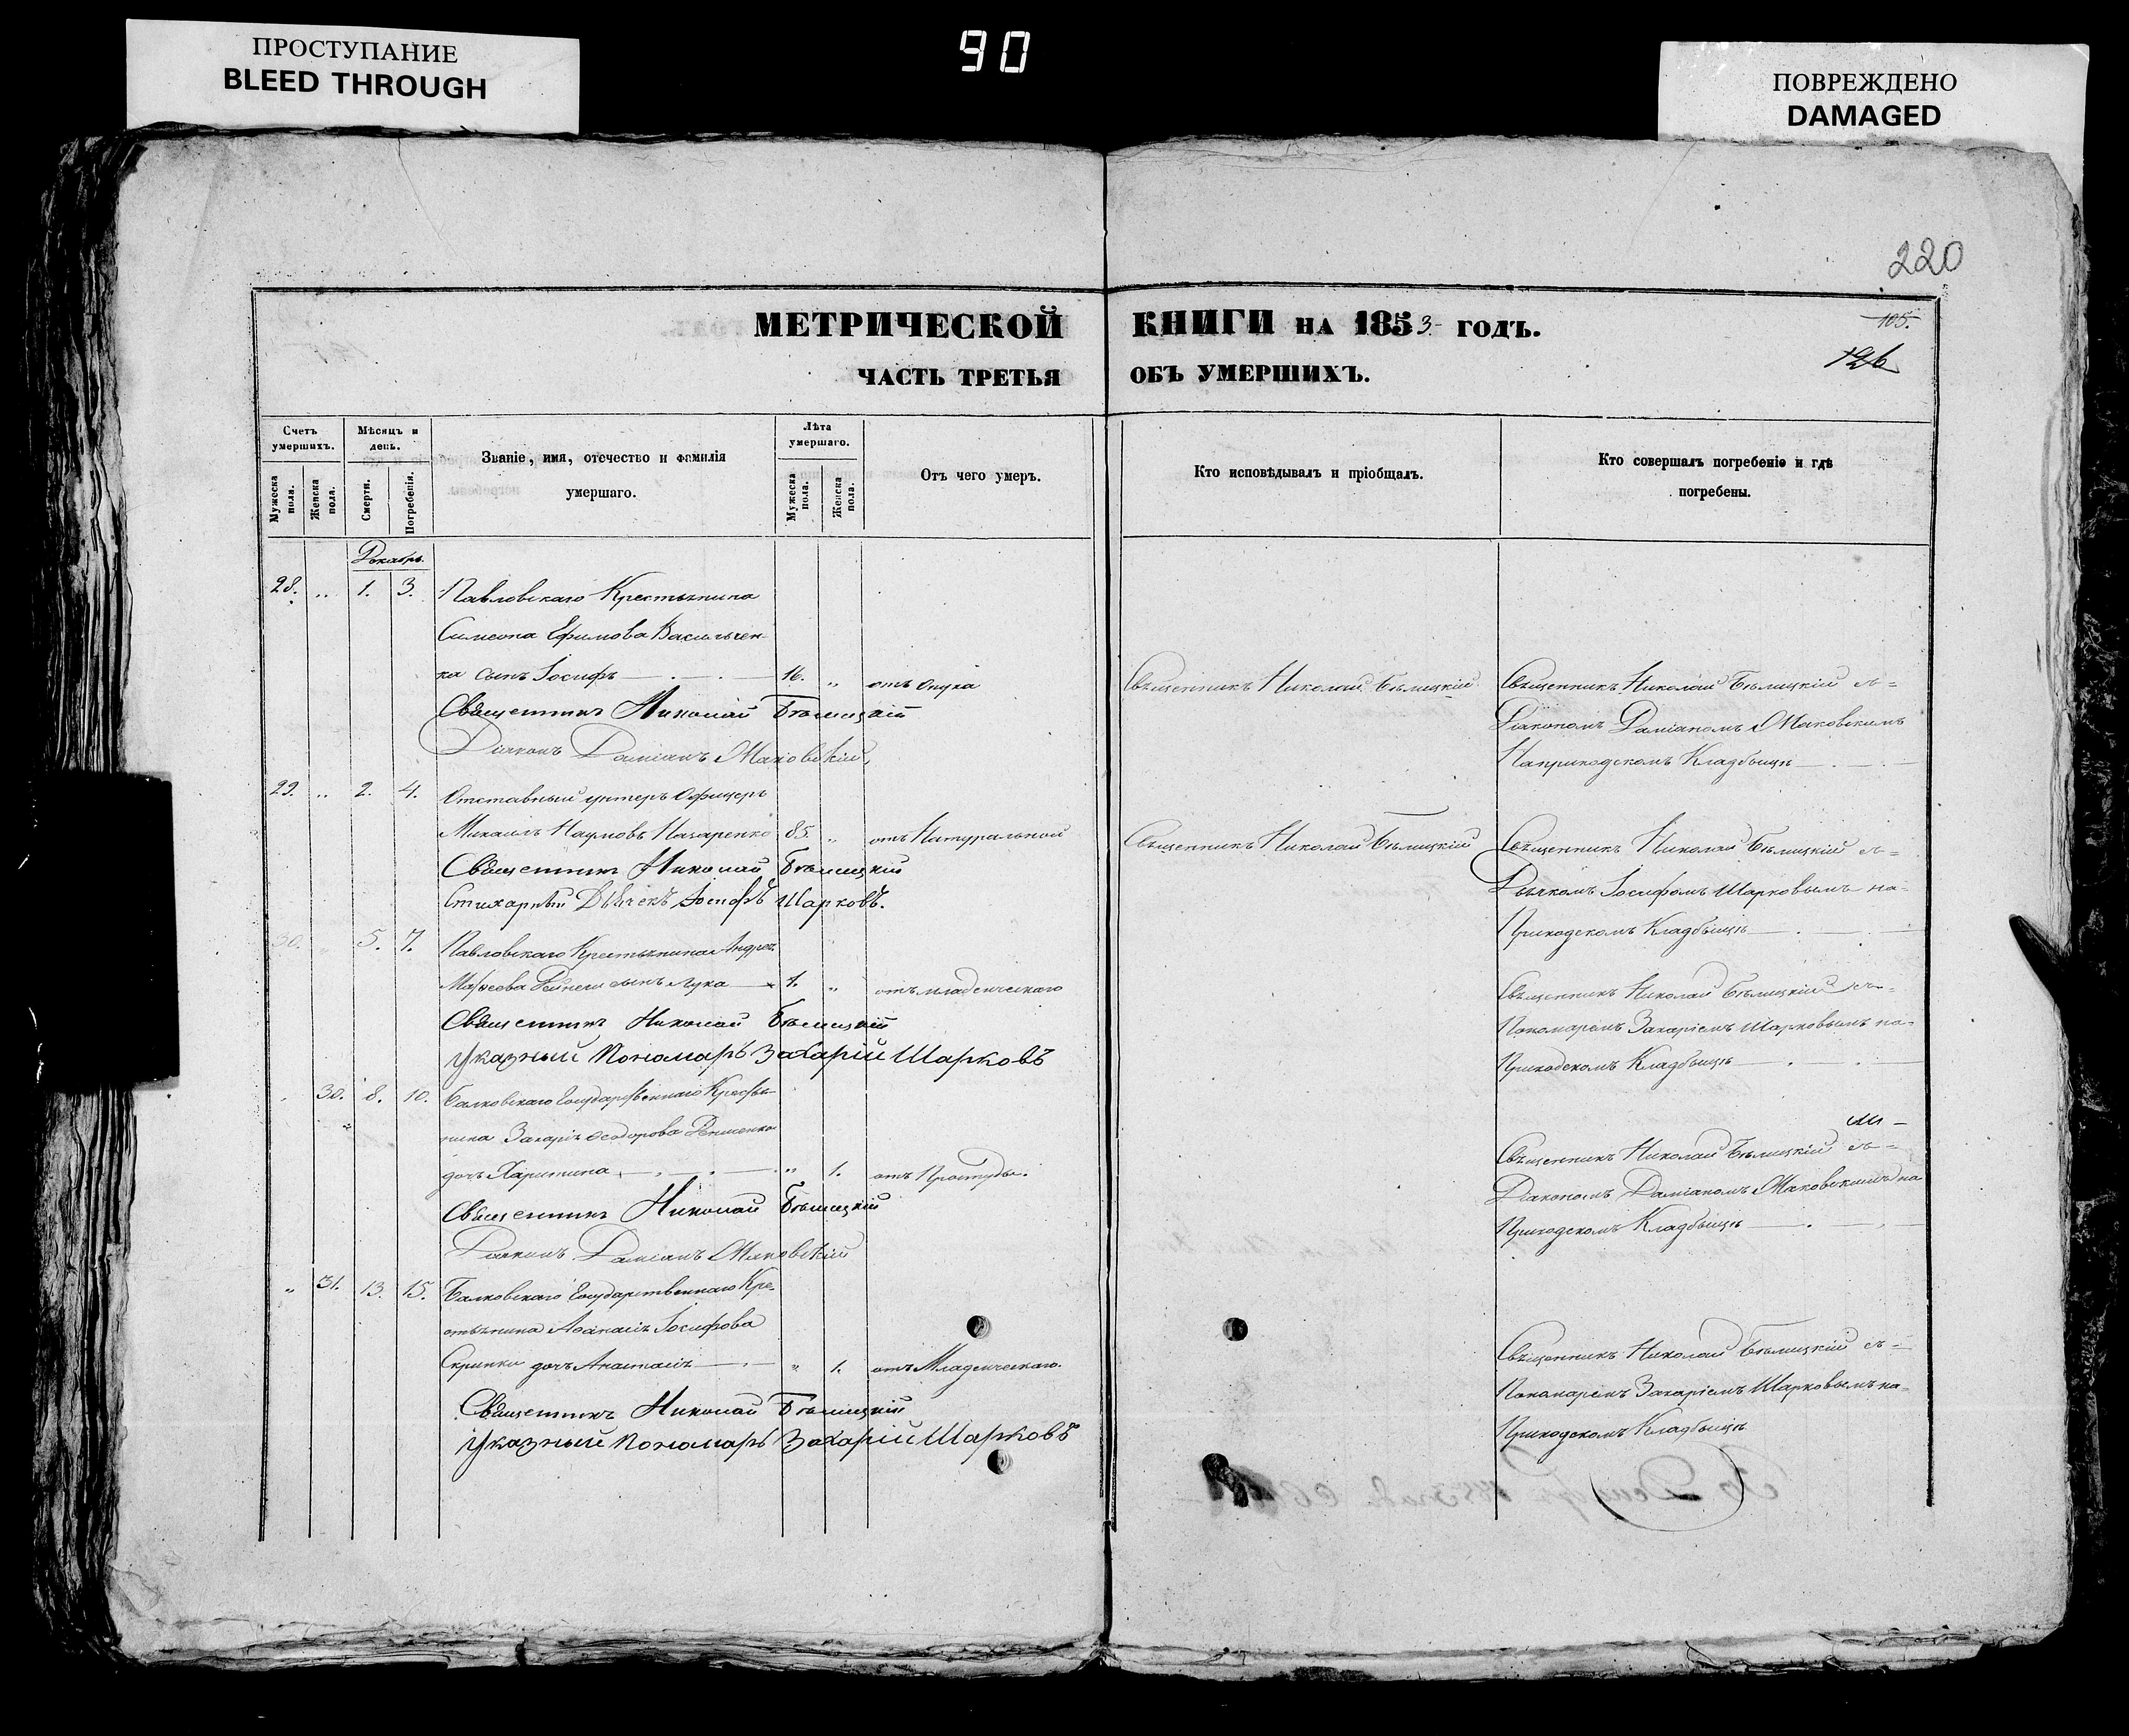 ПРОСТУПАНИЕ
BLEED THROUGH
90
ПОВРЕЖДЕНО
DAMAGED
220
МЕТРИЧЕСКОЙ КНИГИ НА 1853 ГОДЪ.
105.
126
ЧАСТЬ ТРЕТЬЯ ОБЪ УМЕРШИХЪ.
Счетъ умершихъ.
Мѣсяцъ и день.
Званіе, имя, отечество и фамилія умершаго.
Лѣта умершаго.
Отъ чего умеръ.
Кто исповѣдывалъ и пріобщалъ.
Кто совершалъ погребеніе и гдѣ погребены.
Мужеска пола.
Женска пола.
Смерти.
Погребенія.
Мужеска пола.
Женска пола.
Декабрь.
28. „ 1. 3. Павловскаго Крестьянина
Симеона Ефимова Васильчен-
ка сынъ Іосифъ 16. „ отъ опуха
Священникъ Николай Бѣлицкій
Священникъ Николай Бѣлицкій съ=
Діакономъ Даміаномъ Маковскимъ
Наприходскомъ Кладбищѣ
Священникъ Николай Бѣлицкій
Діаконъ Даміанъ Маковскій,
29. „ 2. 4. Отставный унтеръ Офицеръ
Михаилъ Наумовъ Назаренко 85. „ отъ Натуральной
Священникъ Николай Бѣлицкій
Священникъ Николай Бѣлицкій съ=
Дьячкомъ Іосифомъ Шарковымъ на-
Приходскомъ Кладбищѣ
Священникъ Николай Бѣлицкій
Стихарный Дьячекъ Іосифъ Шарковъ.
30. „ 5. 7. Павловскаго Крестьянина Андрея
Матѳеева сынъ Лука 1. „ отъ младенческаго
Священникъ Николай Бѣлицкій съ=
Пономаремъ Захаріемъ Шарковымъ на-
Приходскомъ Кладбищѣ
Священникъ Николай Бѣлицкій
Указный Пономарь Захарій Шарковъ
„ 30. 8. 10. Балковскаго Государственнаго Крестья-
нина Захарія Ѳеодорова
дочь Харитина „ 1. отъ Простуды.
Священникъ Николай Бѣлицкій съ=
Діакономъ Даміаномъ Маковскимъ на
Приходскомъ Кладбищѣ
Священникъ Николай Бѣлицкій
Діаконъ Даміанъ Маковскій
„ 31. 13. 15. Балковскаго Государственнаго Кре-
стьянина Аѳанасія Іосифова
Скрипки дочь Анастасія „ 1. отъ Младенческаго.
Священникъ Николай Бѣлицкій съ=
Пономаремъ Захаріемъ Шарковымъ на-
Приходскомъ Кладбищѣ
Священникъ Николай Бѣлицкій
Указный Пономарь Захарій Шарковъ